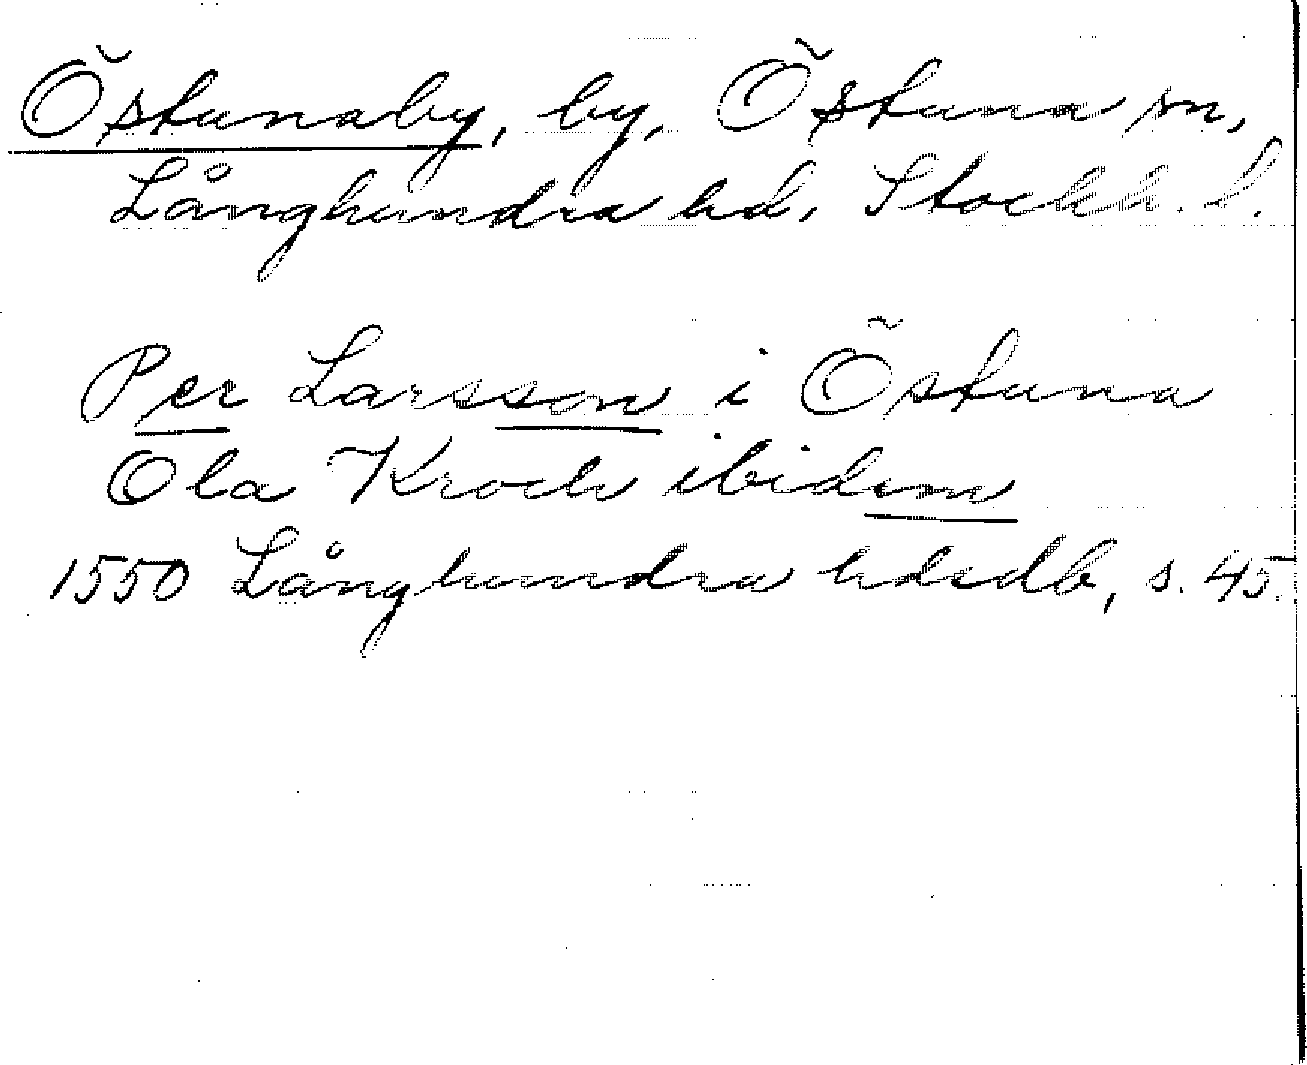 Östunaby, by, Östuna sn,
Långhundra hd, Stockh. l.
Per Larsson i Östuna
Ola Krock ibidem
1550 Långhundra hdsdb, s. 45.